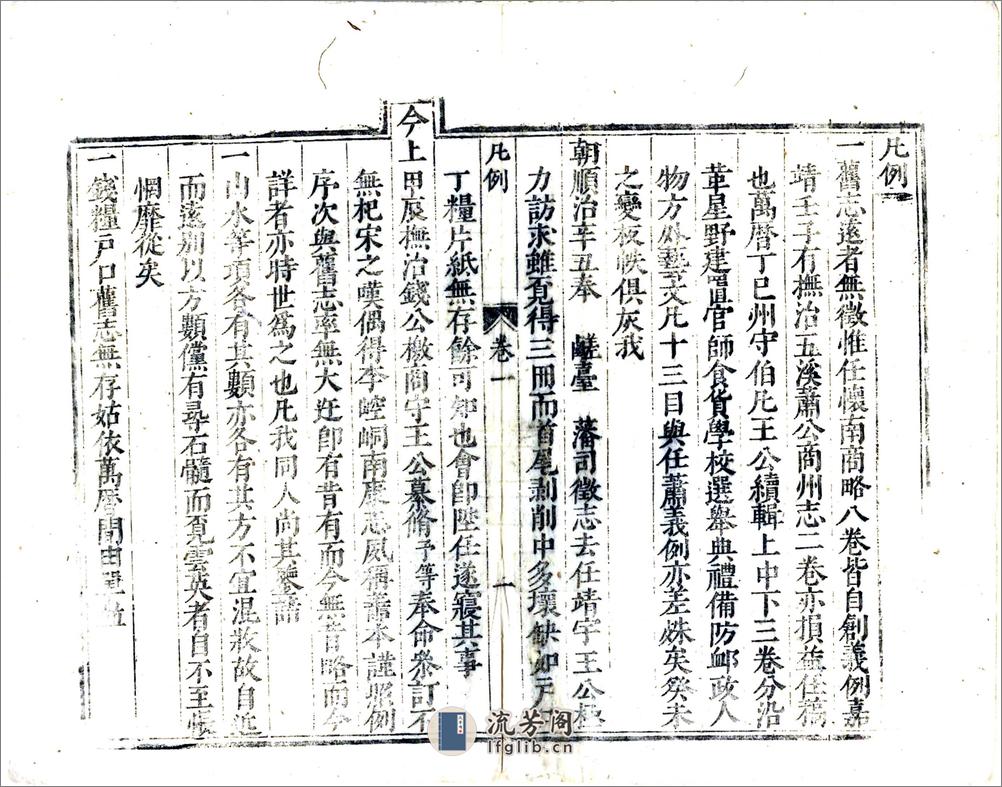 凡例
一舊志遠者無徵惟任懷南商略八卷皆自創義例嘉
靖壬子有撫治五溪蕭公商州志二卷亦損益任稿
也萬曆丁巳州守伯凡王公續輯上中下三卷分沿
革星野建置官師食貨學校選舉典禮備防邮政人
物方外藝文凡十三目與任蕭義例亦差殊矣癸未
之變板帙俱灰我
朝順治辛丑奉 鹺臺 藩司徵志去任靖宇王公極
力訪求雖覓得三冊而首尾剥削中多壞缺如元
凡例 卷一 一
丁糧片紙無存餘可知也會卽陞任遂寢其事
今上甲辰撫治錢公檄商守王公纂脩予等奉命叅訂不
無杞宋之嘆偶得李崆峒南康志夙稱善本謹照例
序次與舊志率無大逕卽有昔有而今無昔略而今
詳者亦時世爲之也凡我同人尚其鑒諸
一山水等項各有其類亦各有其方不宜混敘故自近
而遠別以方類儻有尋石髓而覓雲英者自不至悵
惘靡從矣
一錢糧戶口舊志無存姑依萬曆間
流芳阁
lfglib.cn